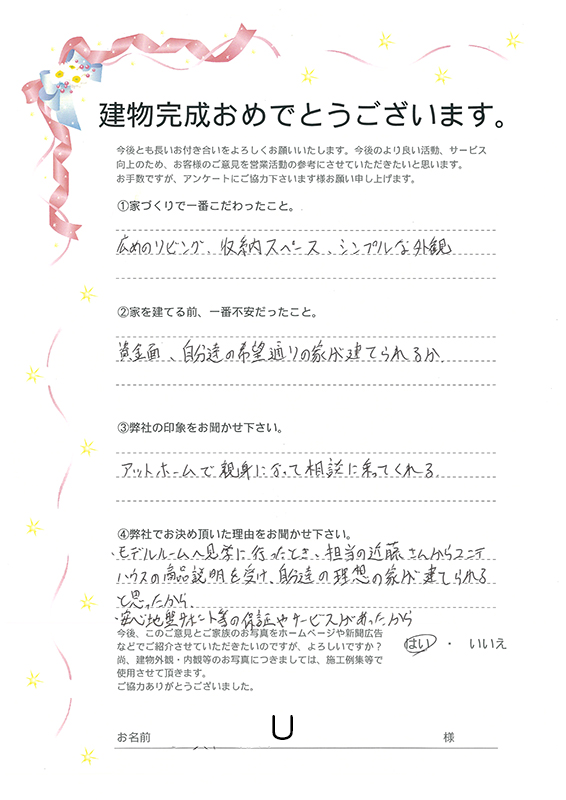 建物完成おめでとうございます。
今後とも長いお付き合いをよろしくお願いいたします。今後のより良い活動、サービス
向上のため、お客様のご意見を営業活動の参考にさせていただきたいと思います。
お手数ですが、アンケートにご協力下さいます様お願い申し上げます。
①家づくりで一番こだわったこと。
広めのリビング、収納スペース、シンプルな外観
②家を建てる前、一番不安だったこと。
資金面、自分達の希望通りの家が建てられるか。
③弊社の印象をお聞かせ下さい。
アットホームで親身になって相談に乗ってくれる。
④弊社でお決め頂いた理由をお聞かせ下さい。
・モデルルームへ見学に行ったとき、担当の近藤さんからユニテ
ハウスの商品説明を受け、自分達の理想の家が建てられる
と思ったから。
・安心地盤サポート等の保証やサービスがあったから
今後、このご意見とご家族のお写真をホームページや新聞広告
などでご紹介させていただきたいのですが、よろしいですか？
尚、建物外観・内観等のお写真につきましては、施工例集等で
使用させて頂きます。
ご協力ありがとうございました。
はい ・ いいえ
お名前 U 様